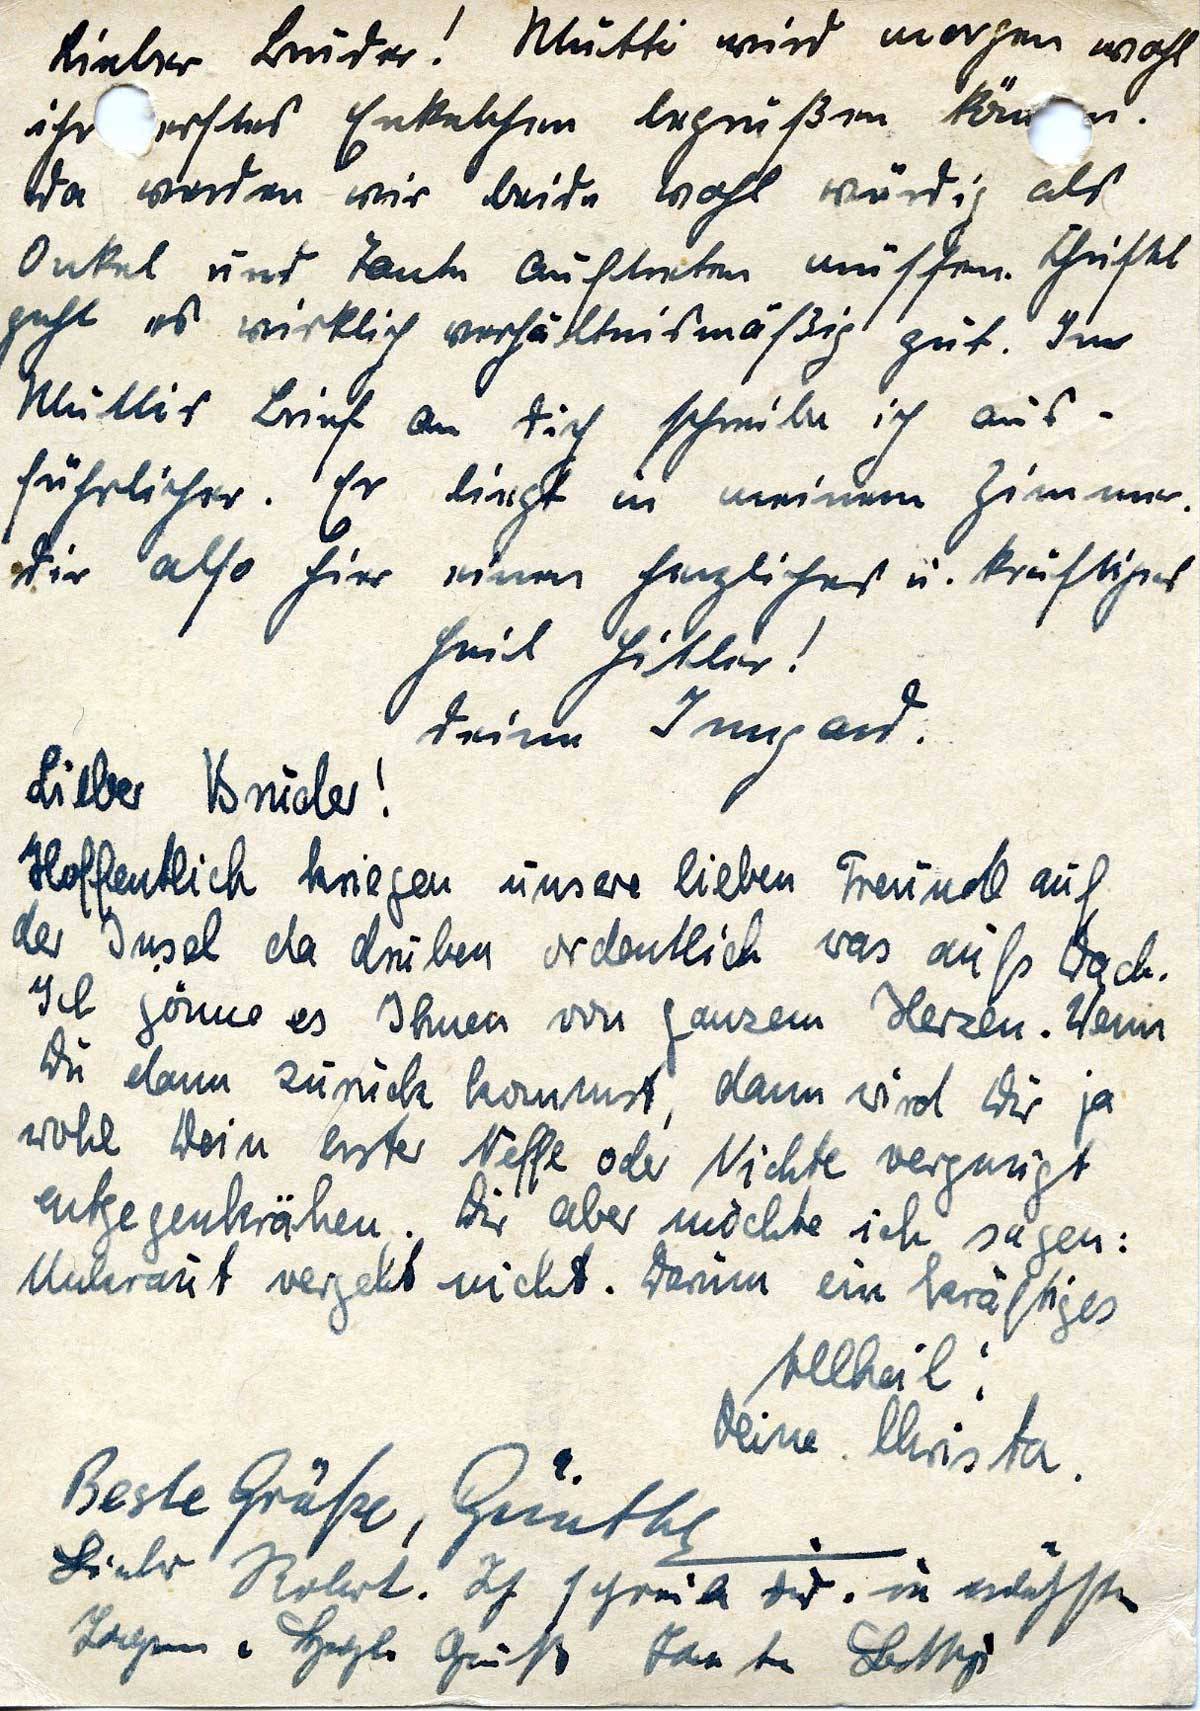 Lieber Bruder! Mutti wird morgen wohl
ihr erstes Enkelchen begrüßen können.
Da werden wir beide wohl würdig als
Onkel und Tante auftreten müssen. Christel
geht es wirklich verhältnismäßig gut. In
Muttis Brief an Dich schreibe ich aus-
führlicher. Er liegt in meinem Zimmer.
Dir also hier einen herzliches u. kräftiges
Heil Hitler!
Deine Irmgard.
Lieber Bruder!
Hoffentlich kriegen unsere lieben Freunde auf
der Insel da drüben ordentlich was aufs Dach.
Ich gönne es Ihnen von ganzem Herzen. Wenn
Du dann zurück kommst, dann wird Dir ja
wohl Dein erster Neffe oder Nichte vergnügt
entgegenkrähen. Dir aber möchte ich sagen:
Unkraut vergeht nicht. Darum ein kräftiges
Allheil!
Deine Christa.
Beste Grüße, Günther
Lieber Robert. Ich schreibe Dir in nächsten
Tagen. Herzl. Gruß Tante